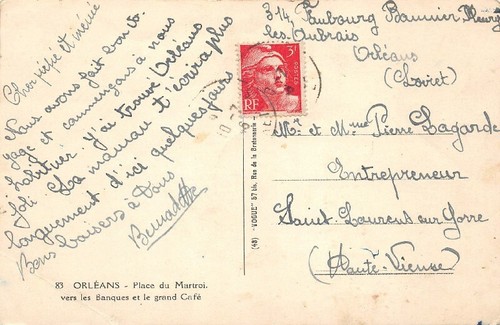 314, Faubourg Bannier Fleury
les-Aubrais
Orléans
(Loiret)
Cher pépé et mémée
Nous avons fait bon vo-
yage et commençons à nous
habituer. J'ai trouvé Orléans
joli. La maman t'écrira plus
longuement d'ici quelques jours
Bons baisers à tous
Bernadette
3F
POSTES
RF
Mr. et Mme Pierre Lagarde
Entrepreneur
Saint-Laurens sur Gorre
(Haute-Vienne)
(45) "VOGUE" 57 bis, Rue de la Bretonnerie
83 ORLÉANS - Place du Martroi.
vers les Banques et le grand Café